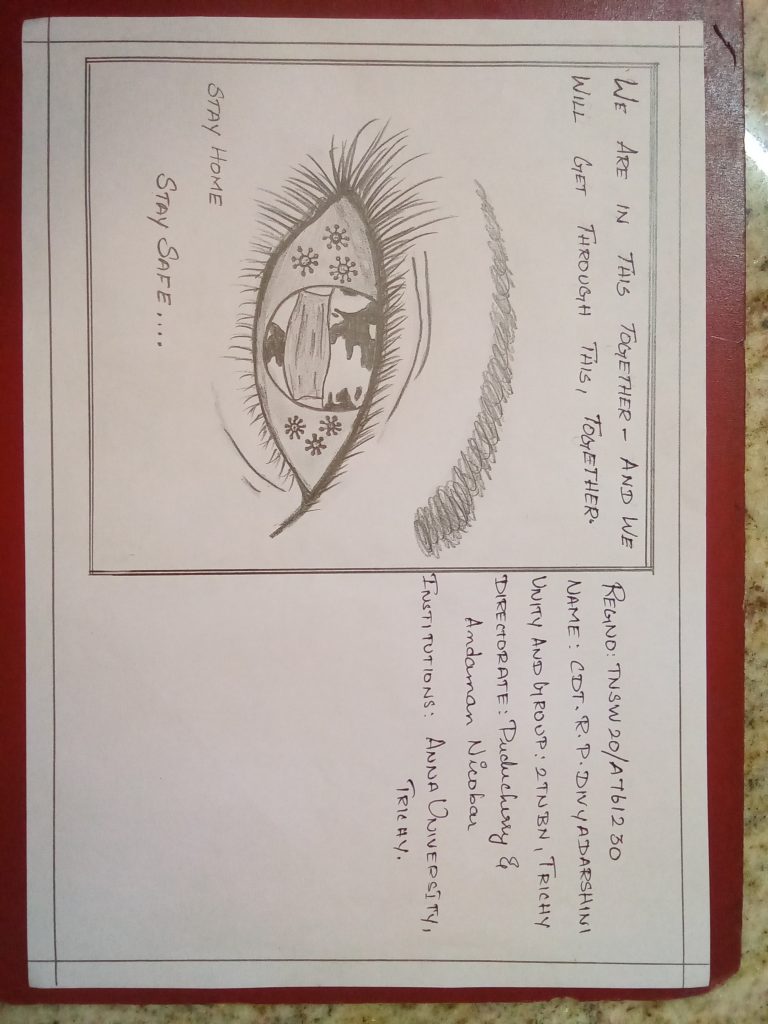 WE ARE IN THIS TOGETHER - AND WE
WILL GET THROUGH THIS, TOGETHER.
STAY HOME
STAY SAFE....
REGNO: TNSW20/A761230
NAME: CDT. R. P. DIVYADARSHINI
UNITY AND GROUP: 2TNBN, TRICHY
DIRECTORATE: Puducherry &
Andaman Nicobar
INSTITUTIONS: ANNA UNIVERSITY,
TRICHY.